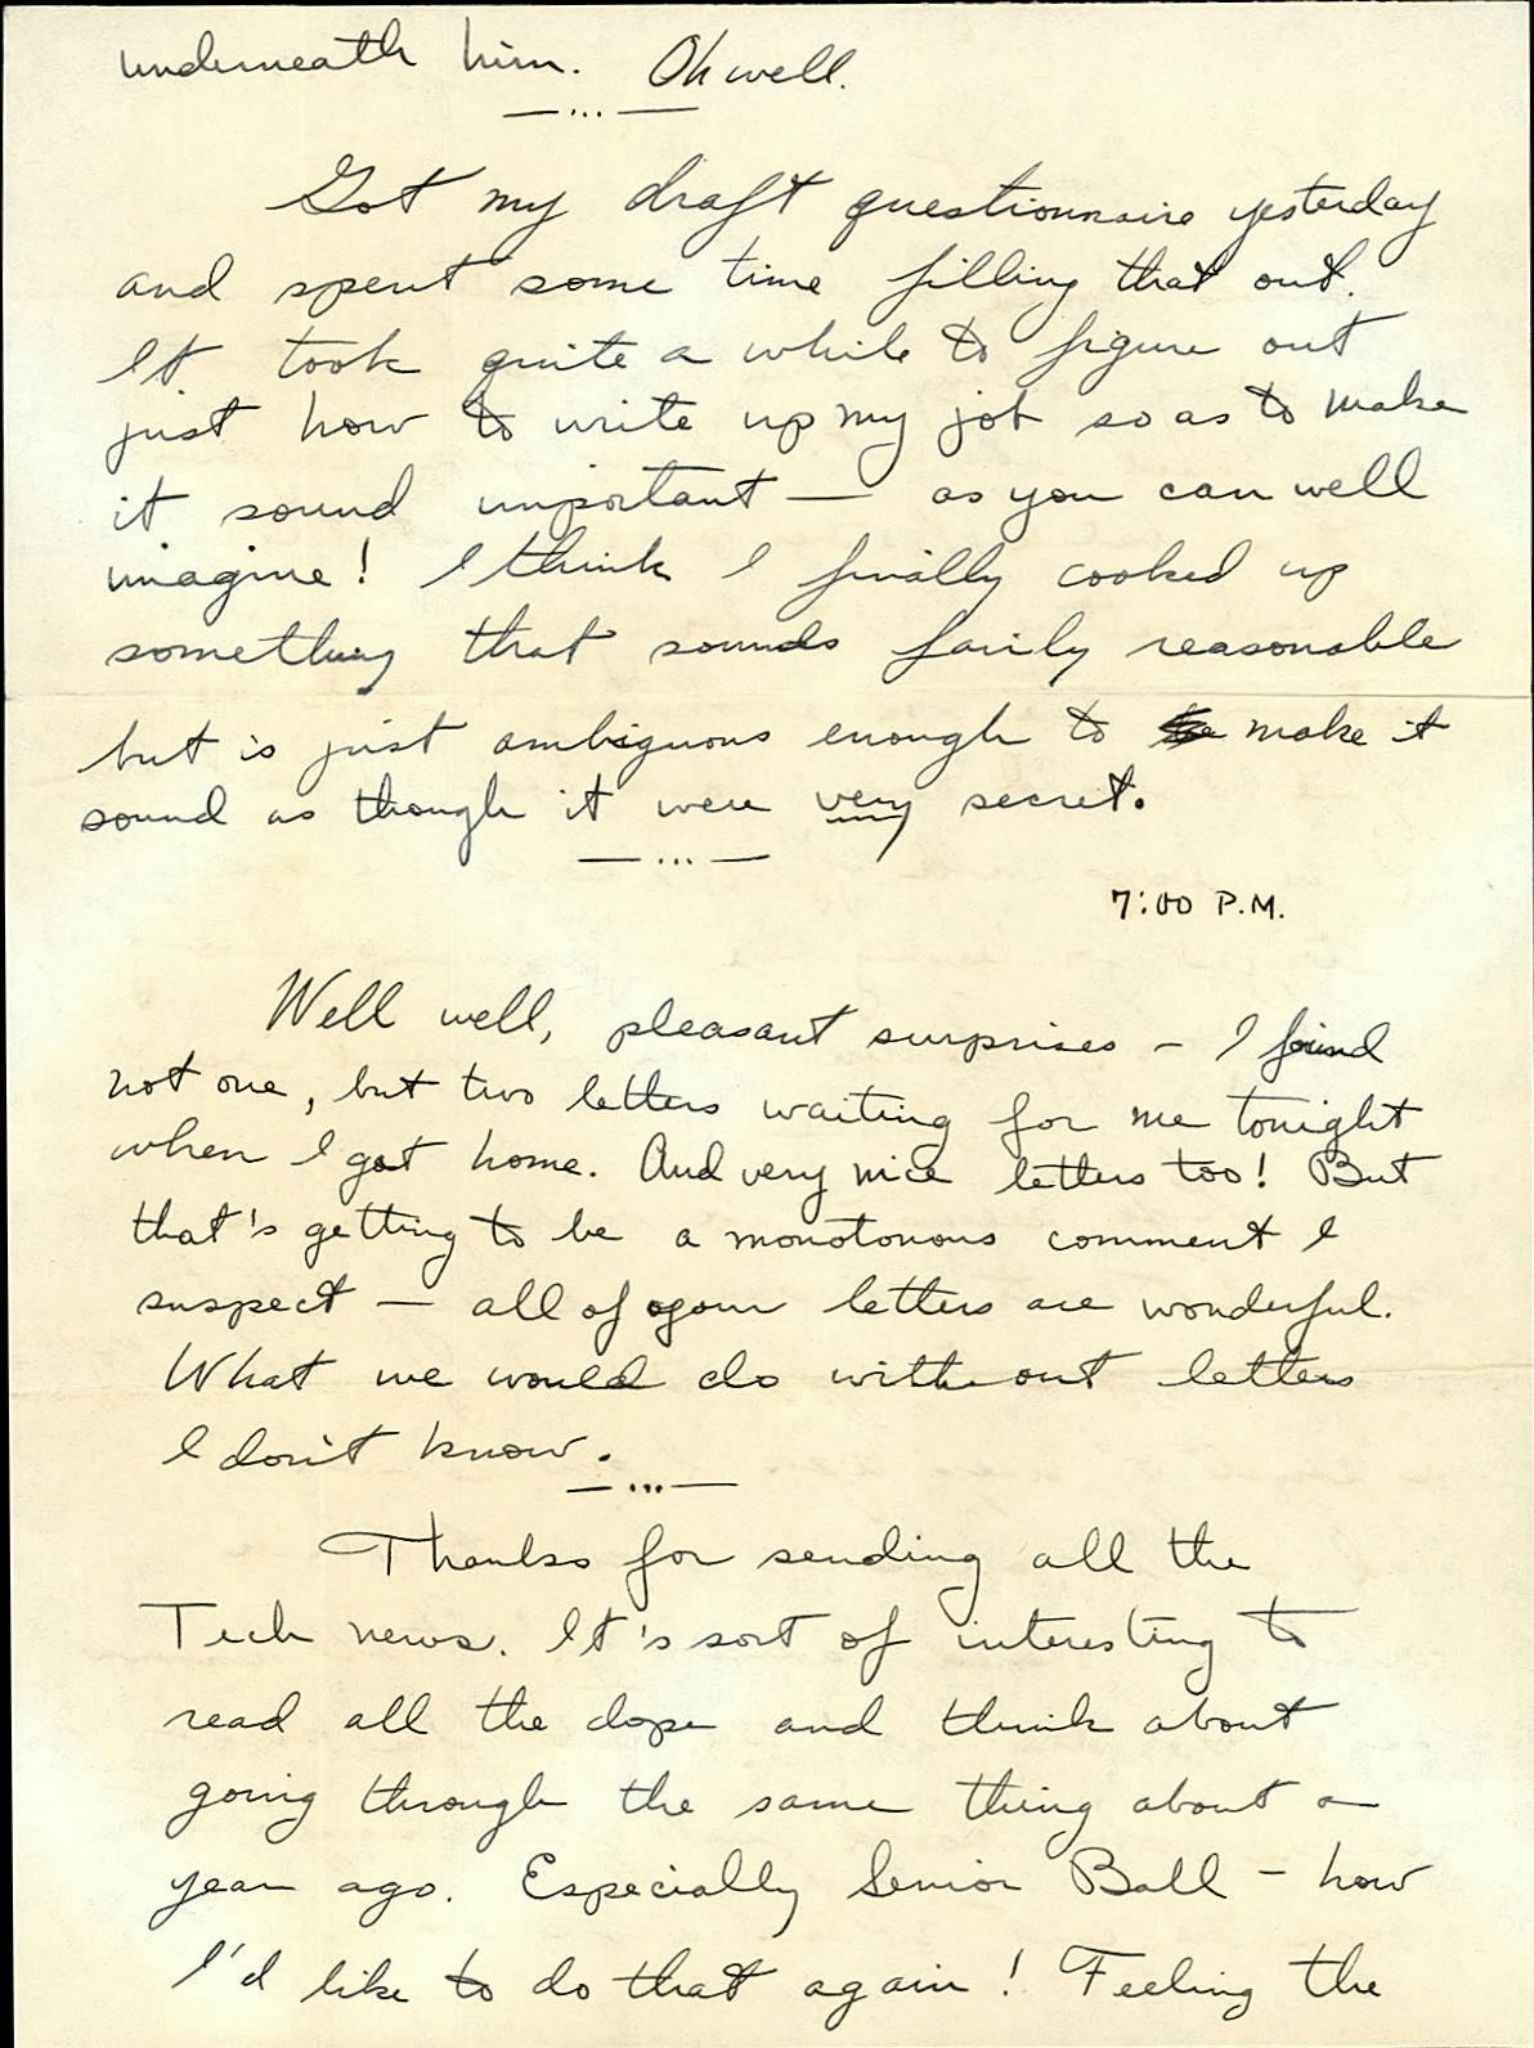 underneath him. Oh well.
—...—
Got my draft questionnaire yesterday
and spent some time filling that out.
It took quite a while to figure out
just how to write up my job so as to make
it sound important — as you can well
imagine! I think I finally cooked up
something that sounds fairly reasonable
but is just ambiguous enough to make it
sound as though it were very secret.
—...—
7:00 P.M.
Well well, pleasant surprises - I found
not one, but two letters waiting for me tonight
when I got home. And very nice letters too! But
that's getting to be a monotonous comment I
suspect — all of your letters are wonderful.
What we would do without letters
I don't know.
—...—
Thanks for sending all the
Tech news. It's sort of interesting to
read all the dope and think about
going through the same thing about a
year ago. Especially Senior Ball - how
I'd like to do that again! Feeling the